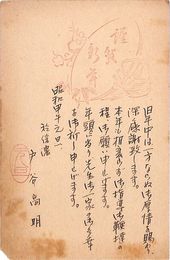 謹賀
新年
旧年中は一方ならぬ御厚情を賜り
深く感謝致します。
本年も相変らず御指導御鞭撻の
程御願い申します。
年頭に当り先生御一家の御多幸
を御祈り申上げます。
昭和甲午元旦
於信濃
戸谷 明